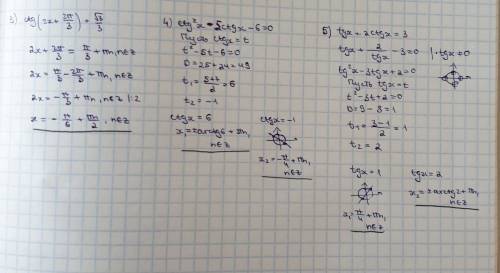 3) ctg(2x + 2π/3) = √3/3
2x + 2π/3 = π/3 + πn, n∈Z
2x = π/3 - 2π/3 + πn, n∈Z
2x = -π/3 + πn, n∈Z |:2
x = -π/6 + πn/2, n∈Z
4) ctg²x - 5ctgx - 6 = 0
Пусть ctgx = t
t² - 5t - 6 = 0
D = 25 + 24 = 49
t₁ = (5+7)/2 = 6
t₂ = -1
ctgx = 6
x₁ = ±arcctg6 + πn,
n∈Z
ctgx = -1
x₂ = -π/4 + πn,
n∈Z
5) tgx + 2ctgx = 3
tgx + 2/tgx - 3 = 0 | · tgx ≠ 0
tg²x - 3tgx + 2 = 0
Пусть tgx = t
t² - 3t + 2 = 0
D = 9 - 8 = 1
t₁ = (3-1)/2 = 1
t₂ = 2
tgx = 1
x₁ = π/4 + πn,
n∈Z
tgx = 2
x₂ = ±arctg2 + πn,
n∈Z